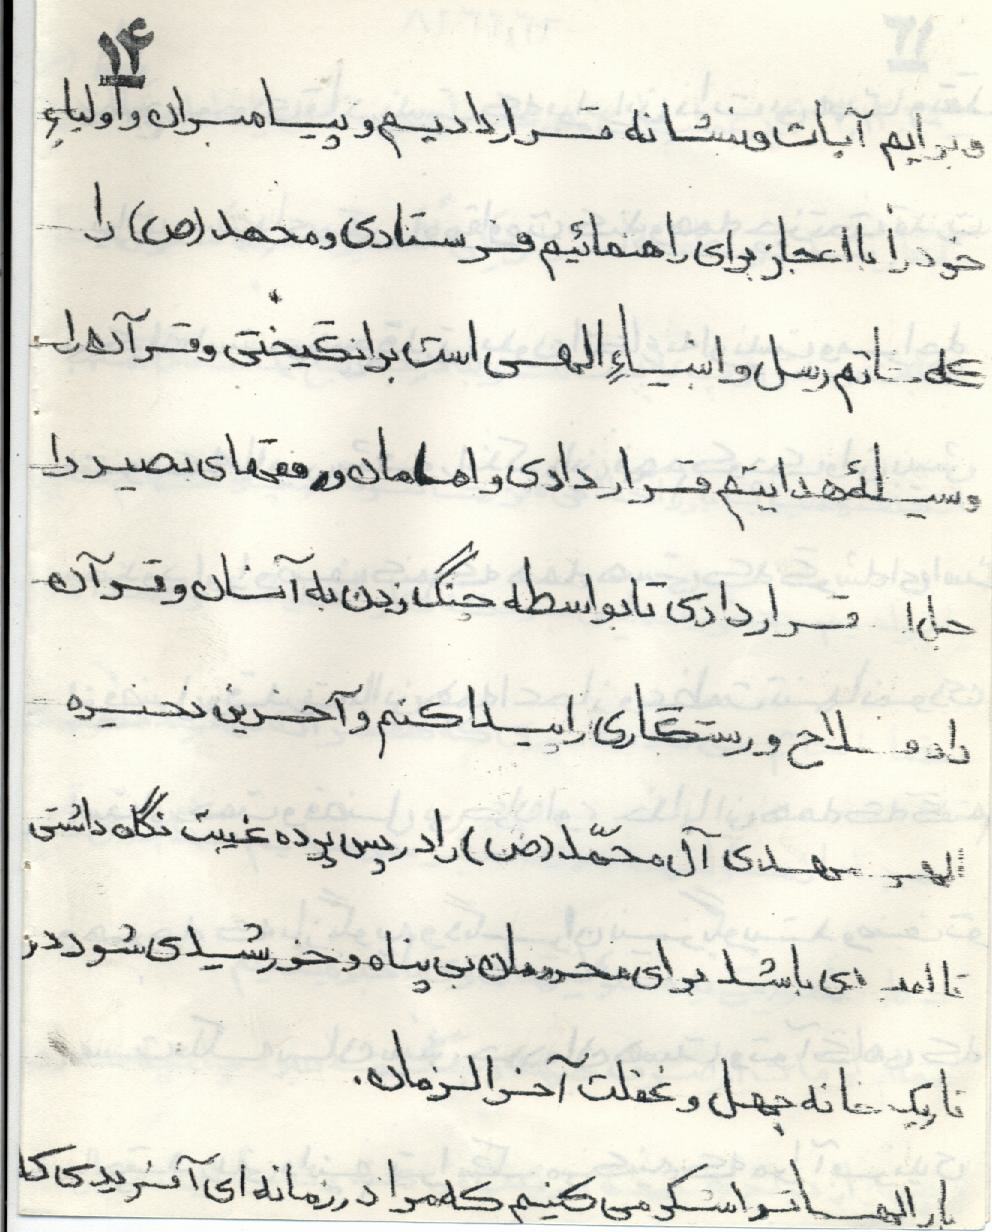 ۱۴
وبرایم آیات ونشانه قرار دادیم و پیامبران واولیاءِ
خود را با اعجاز برای راهنمائیم فرستادی ومحمد (ص) را
که خاتم رسل و انبیاءِ الهی است برانگیختی وقرآن را
وسیلهٔ هدایتم قرار دادی و امامان و فقهای بصیر را
قرار دادی تا بواسطه چنگ زدن به آنان وقرآن
راه فلاح و رستگاری را پیدا کنم و آخرین ذخیره
الهی مهدی آل محمّد (ص) را در پس پرده غیبت نگاه داشتی
تا امیدی باشد برای محرومان بی پناه و خورشیدی شود در
تاریک خانه جهل و غفلت آخرالزمان.
بارالها تو را شکر می کنیم که مرا در زمانه ای آفریدی که